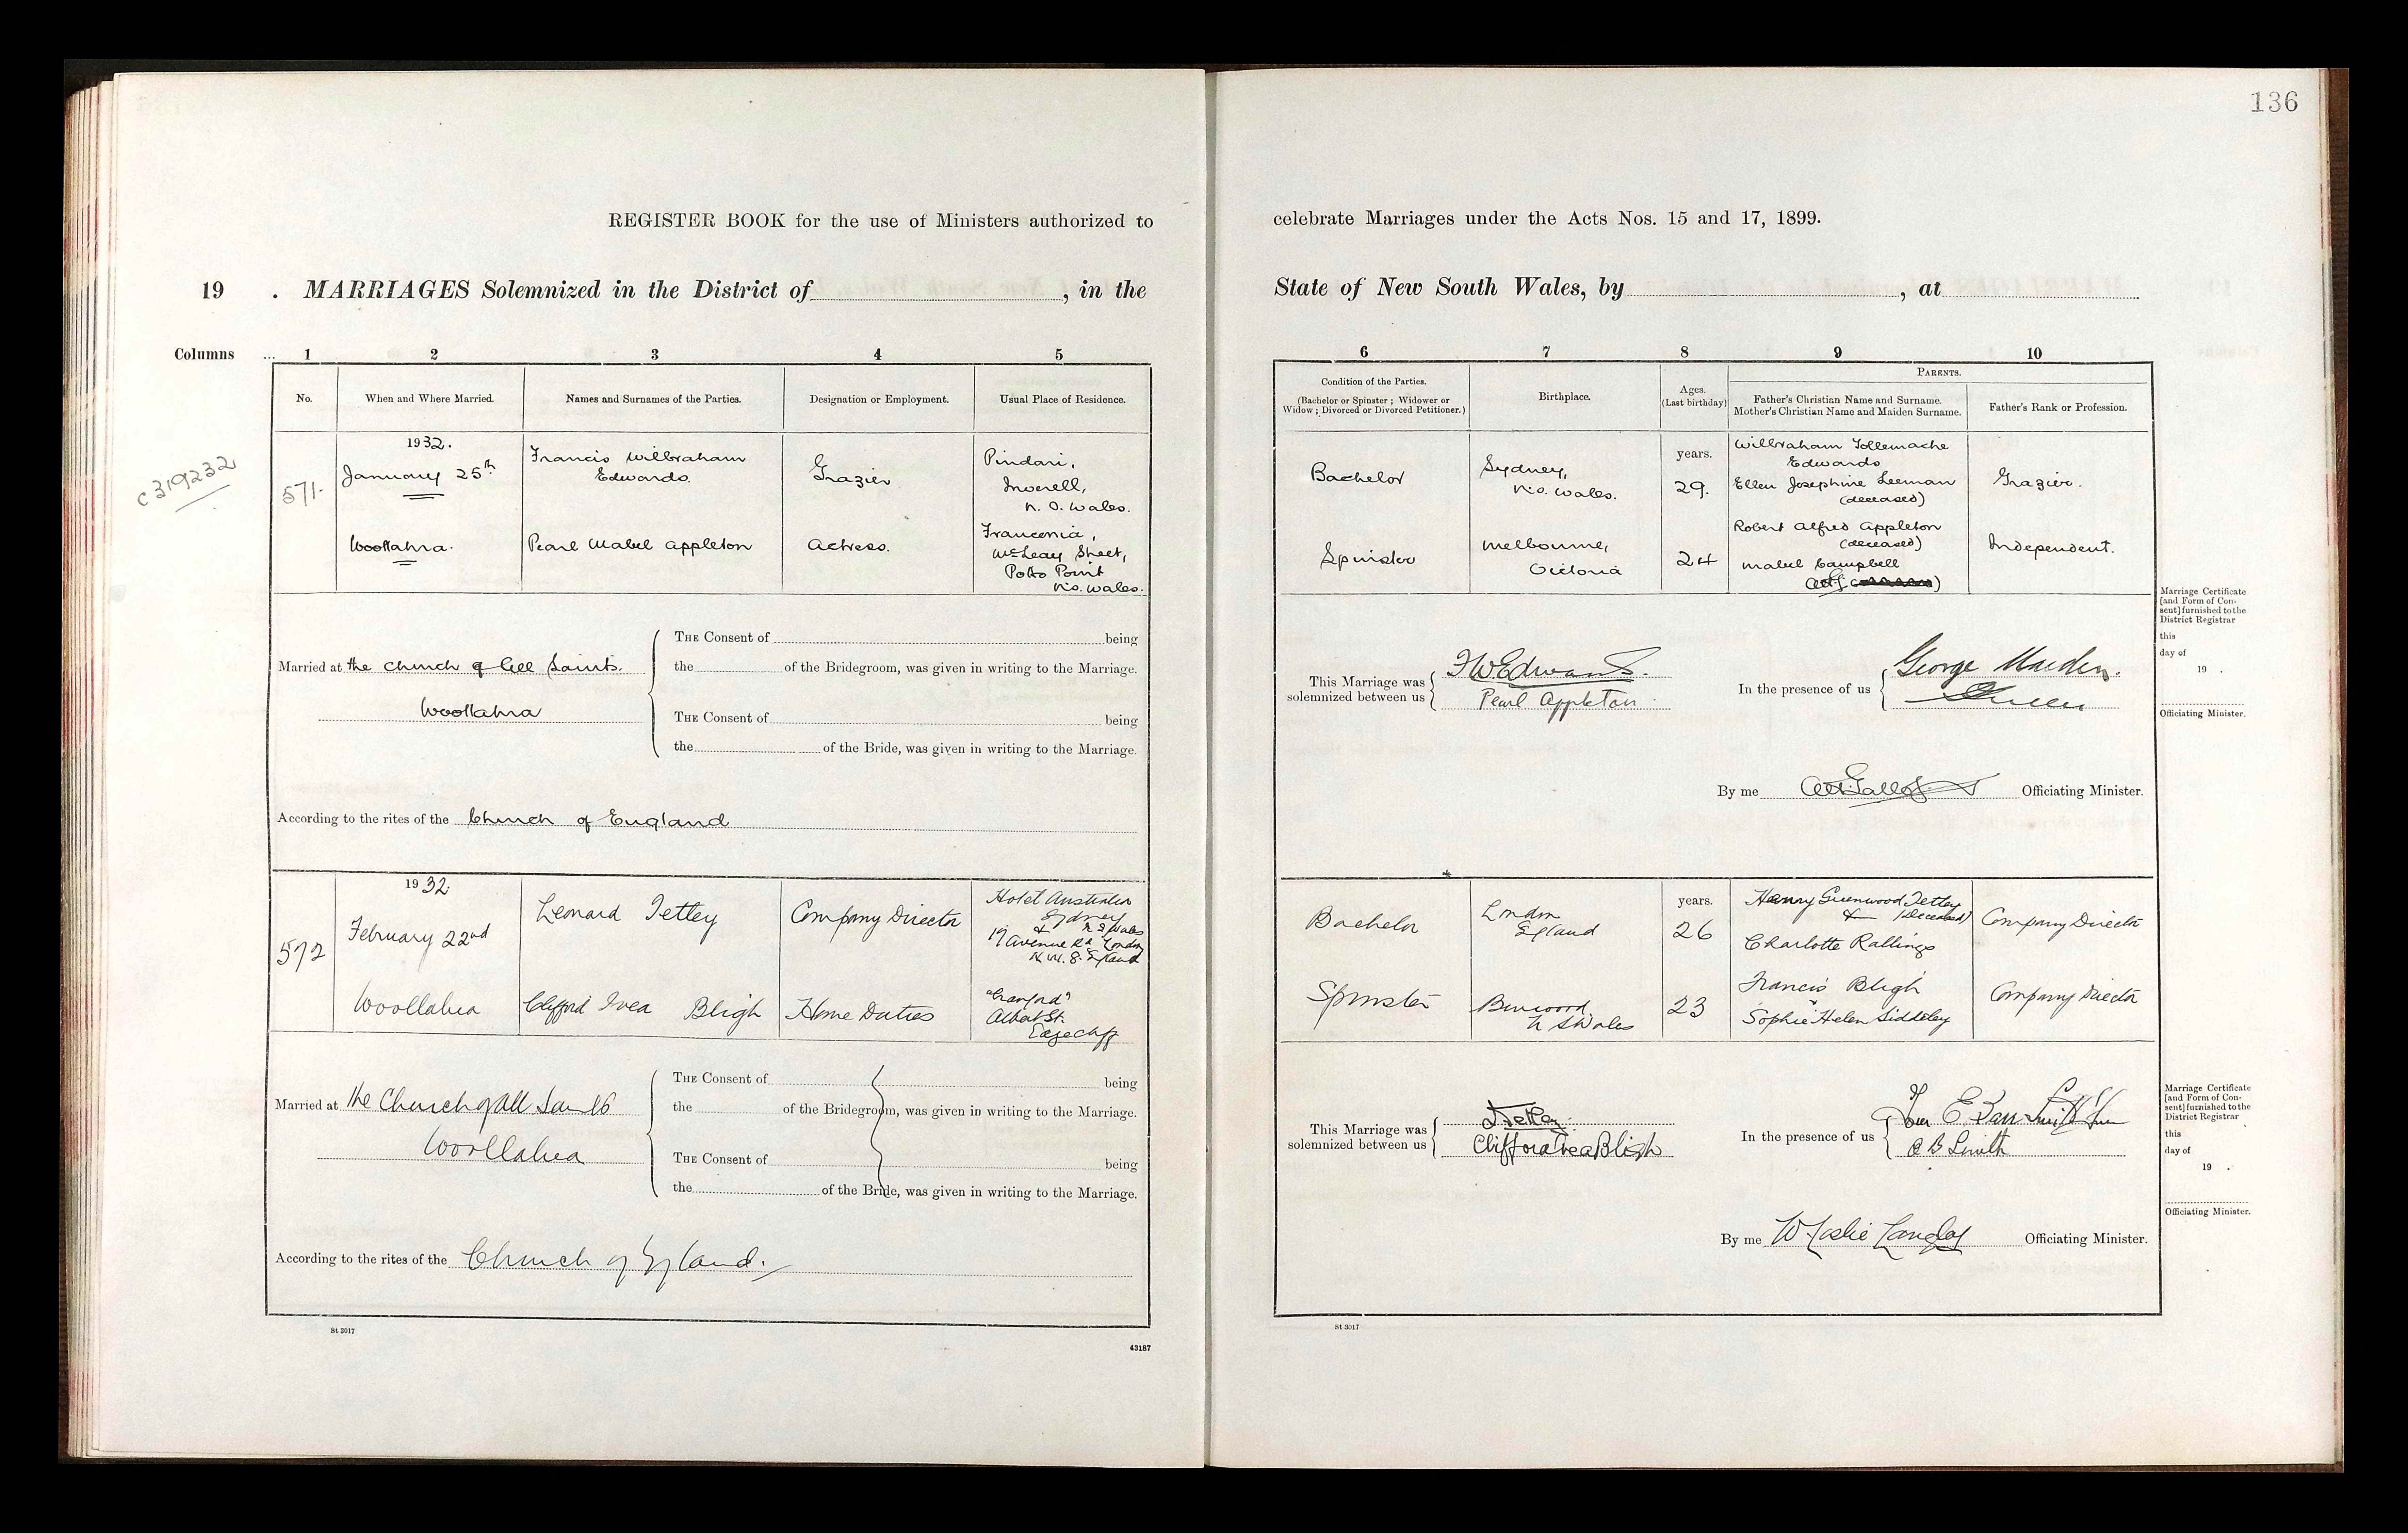 136
REGISTER BOOK for the use of Ministers authorized to
celebrate Marriages under the Acts Nos. 15 and 17, 1899.
19 . MARRIAGES Solemnized in the District of , in the
State of New South Wales, by , at
Columns ... 1 2 3 4 5
No. When and Where Married. Names and Surnames of the Parties. Designation or Employment. Usual Place of Residence.
c319232
1932.
571. January 25th
Woollahra.
Francis Wilbraham
Edwards.
Grazier
Pindari,
Inverell,
N. S. Wales.
Pearl Mabel Appleton
Actress.
Franconia,
McLeay Street,
Potts Point
N.S. Wales.
Married at the Church of All Saints.
Woollahra
THE Consent of being
the of the Bridegroom, was given in writing to the Marriage.
THE Consent of being
the of the Bride, was given in writing to the Marriage.
According to the rites of the Church of England
1932.
572 February 22nd
Woollahra
Leonard Tetley
Company Director
Hotel Australia
Sydney
N S Wales
&
19 Avenue Rd London
N.W. 8. England
Clifford Ivea Bligh
Home Duties
"Cranford"
Albert St.
Edgecliff
Married at the Church of All Saints
Woollahra
THE Consent of being
the of the Bridegroom, was given in writing to the Marriage.
THE Consent of being
the of the Bride, was given in writing to the Marriage.
According to the rites of the Church of England.
St 3017
43187
6 7 8 9 10
Condition of the Parties.
(Bachelor or Spinster ; Widower or
Widow ; Divorced or Divorced Petitioner.)
Birthplace.
Ages.
(Last birthday)
PARENTS.
Father's Christian Name and Surname.
Mother's Christian Name and Maiden Surname.
Father's Rank or Profession.
Bachelor
Sydney,
N.S. Wales.
years.
29.
Wilbraham Tollemache
Edwards
Ellen Josephine Leeman
(deceased)
Grazier.
Spinster
Melbourne,
Victoria
24
Robert Alfred Appleton
(deceased)
Mabel Campbell
Independent.
This Marriage was
solemnized between us
F W Edwards.
Pearl Appleton
In the presence of us
George Maiden.
By me Officiating Minister.
Marriage Certificate
[and Form of Con-
sent] furnished to the
District Registrar
this
day of
19 .
Officiating Minister.
Bachelor
London
England
years.
26
Henry Greenwood Tetley
& (deceased)
Charlotte Rallings
Company Director
Spinster
Burwood
N S Wales
23
Francis Bligh
Sophie Helen Siddeley
Company Director
This Marriage was
solemnized between us
Tetley.
Clifford Ivea Bligh
In the presence of us
By me W Leslie Langley Officiating Minister.
Marriage Certificate
[and Form of Con-
sent] furnished to the
District Registrar
this
day of
19 .
Officiating Minister.
St 3017